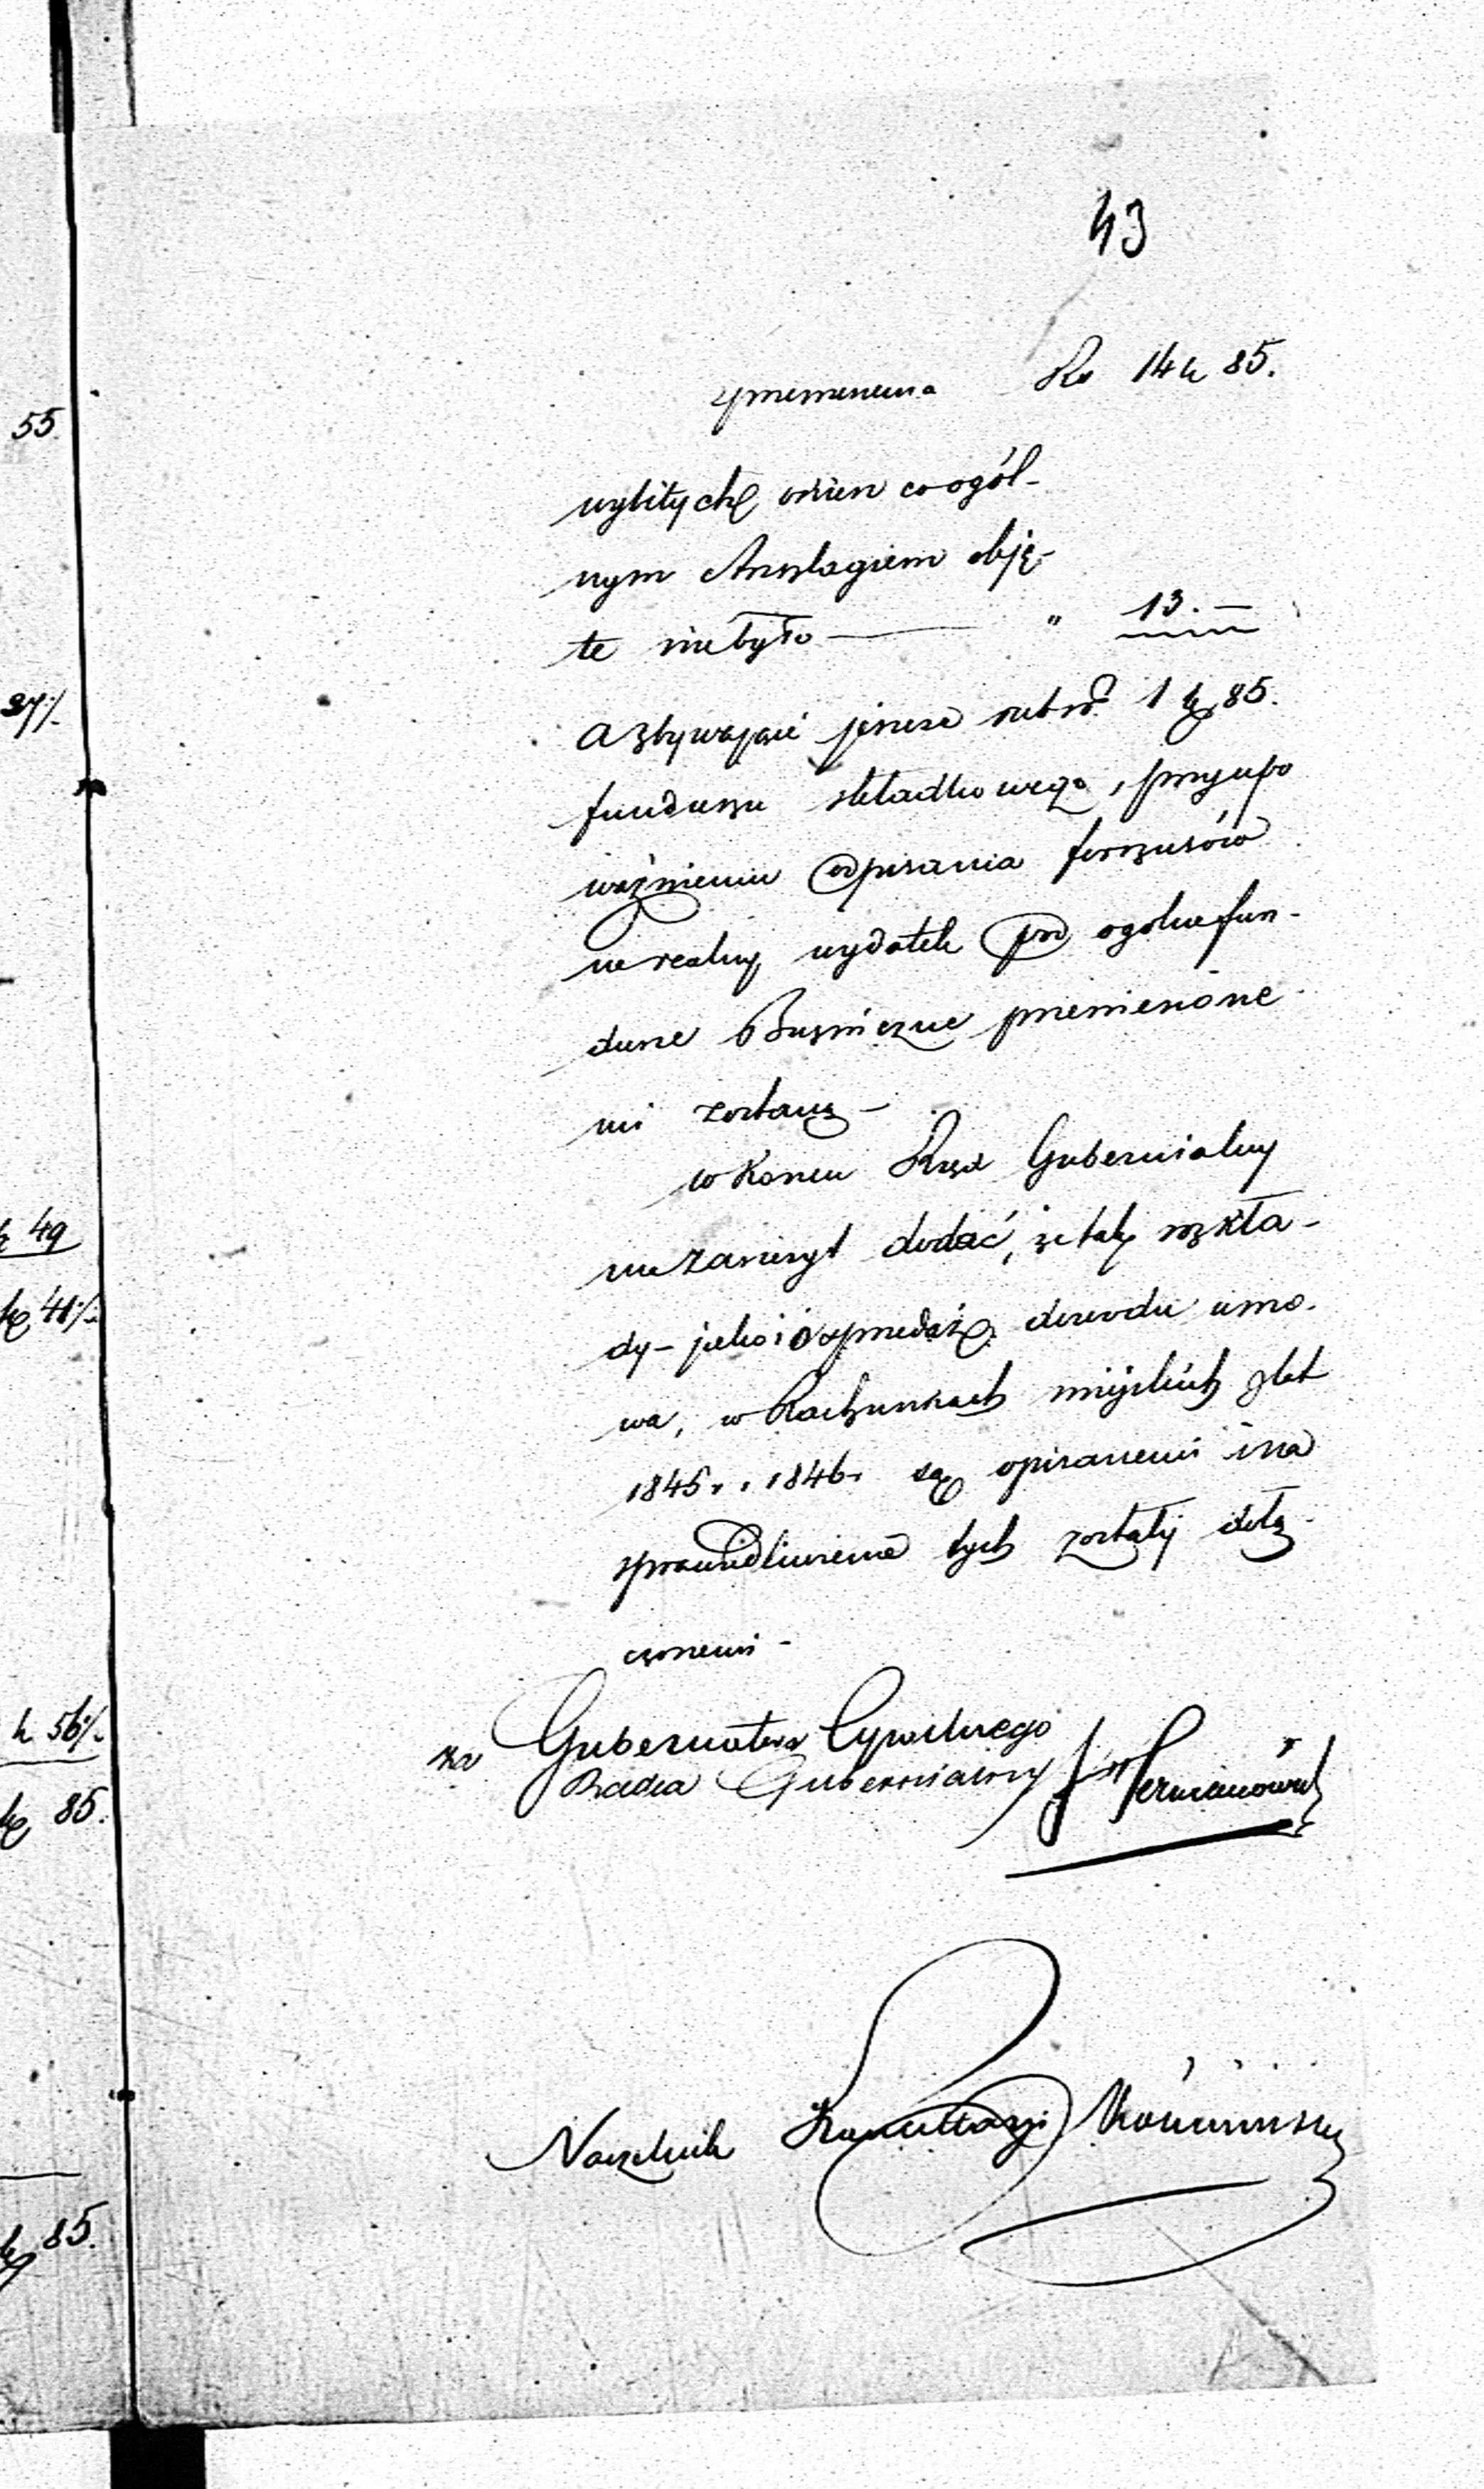 43
z przeniesienia Rs 14 k 85.
wybitych okien co ogól-
nym Anszlagiem obję-
te niebyło — " 13. —
a zbywające jeszcze rubsr. 1 k 85.
funduszu składkowego, przy upo
ważnieniu odpisania forszusów
na realny wydatek pod ogolne fun-
dusze Bużnicze przeniesione-
mi zostaną —
w Koncu Rząd Gubernialny
ma zaszczyt dodać, że tak rozkła-
dy — jako i sprzedaż dowodu umo-
wa, w Rachunkach miejskich z lat
1845. i 1846. są opisanemi i na
sprawiedliwienie tych zostały dołą-
czonemi —
za Gubernatora Cywilnego
Radca Gubernialny
Naczelnik Kancellaryi
55.
37½
49
k 41½
k 56½
k 85.
k 85.